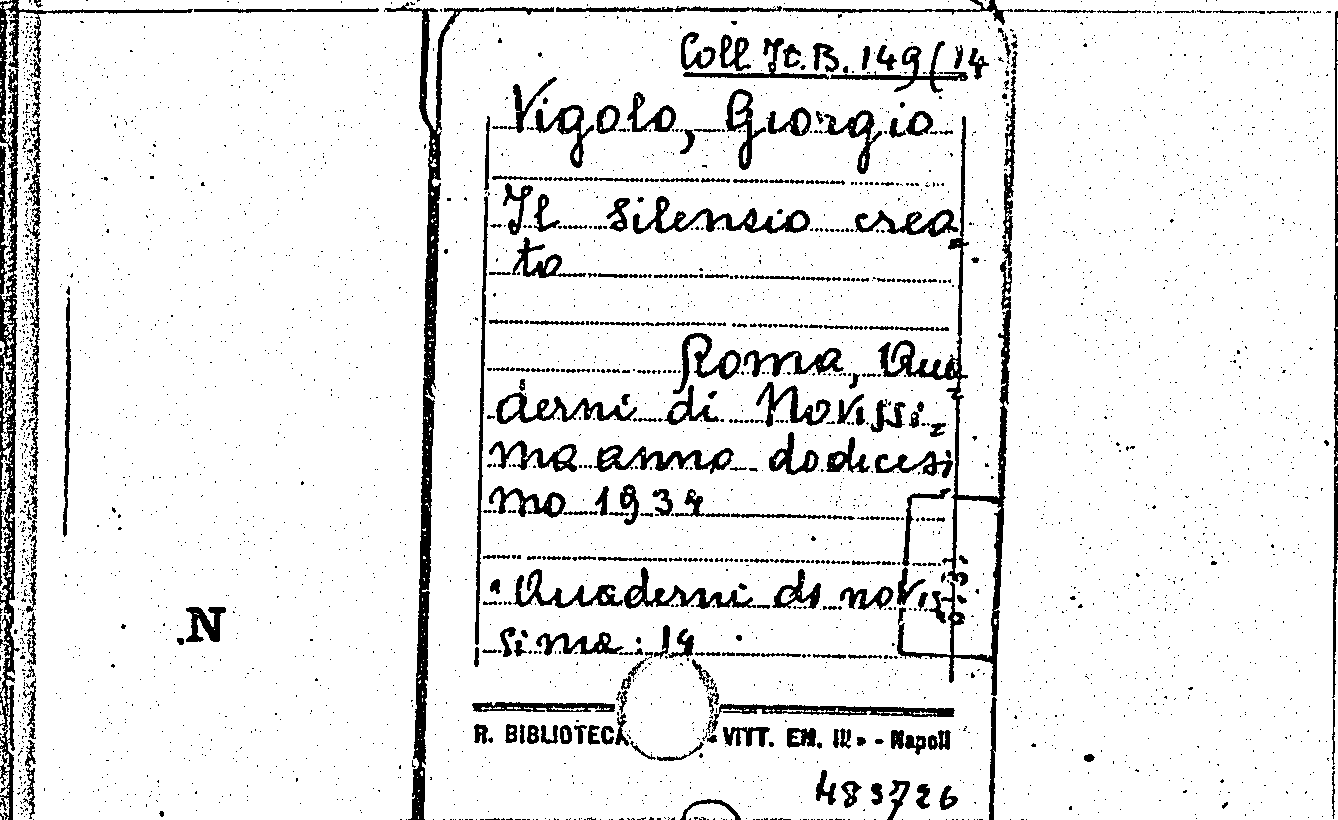 Coll. It. B. 149(14
Vigolo, Giorgio
Il silenzio crea=
to
Roma, Qua=
derni di Novissi=
ma anno dodicesi
mo 1934
"Quaderni di novis
sima: 14
N
R. BIBLIOTECA VITT. EM. III» - Napoli
483726